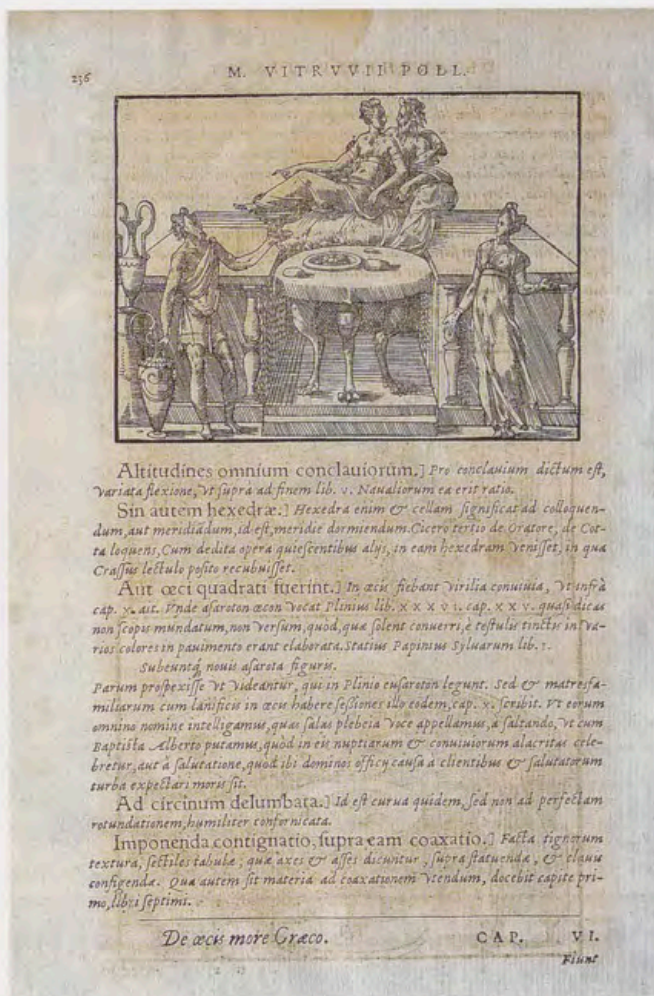 236
M. VITRVVII POLL.
Altitudines omnium conclauiorum.] Pro conclauium dictum est,
variata flexione, vt supra ad finem lib. v. Naualiorum ea erit ratio.
Sin autem hexedræ.] Hexedra enim & cellam significat ad colloquen-
dum, aut meridiādum, id est, meridie dormiendum. Cicero tertio de Oratore, de Cot-
ta loquens, Cum dedita opera quiescentibus alijs, in eam hexedram venisset, in qua
Crassus lectulo posito recubuisset.
Aut œci quadrati fuerint.] In œcis fiebant virilia conuiuia, vt infrà
cap. x. ait. Vnde asaroton œcon vocat Plinius lib. x x x v i. cap. x x v. quasi dicas
non scopis mundatum, non versum, quòd, quæ solent conuerri, è testulis tinctis in va-
rios colores in pauimento erant elaborata. Statius Papinius Syluarum lib. 1.
Subeuntq́; nouis asarota figuris.
Parum prospexisse vt videantur, qui in Plinio eusaroton legunt. Sed & matresfa-
miliarum cum lanificis in œcis habere sessiones illo eodem, cap. x. scribit. Vt eorum
omnino nomine intelligamus, quas salas plebeia voce appellamus, à saltando, vt cum
Baptista Alberto putamus, quòd in eis nuptiarum & conuiuiorum alacritas cele-
bretur, aut à salutatione, quòd ibi dominos officij causa à clientibus & salutatorum
turba expectari moris sit.
Ad circinum delumbata.] Id est curua quidem, sed non ad perfectam
rotundationem, humiliter confornicata.
Imponenda contignatio, supra eam coaxatio.] Facta tignorum
textura, sectiles tabulæ; quæ axes & asses dicuntur, supra statuendæ, & clauis
configendæ. Qua autem sit materia ad coaxationem vtendum, docebit capite pri-
mo, libri septimi.
De œcis more Græco. CAP. VI.
Fiunt